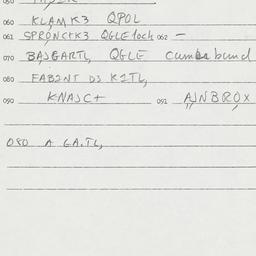 060 KLAMK3 QPOL
061 SPRONCTK3 QGLE loch 062 -
070 BAJGARTL, QGLE Cumbabund
080 FABINT DJ KITL,
090 KNAJC+ 091 AJNBROX
080 A GA.TL,